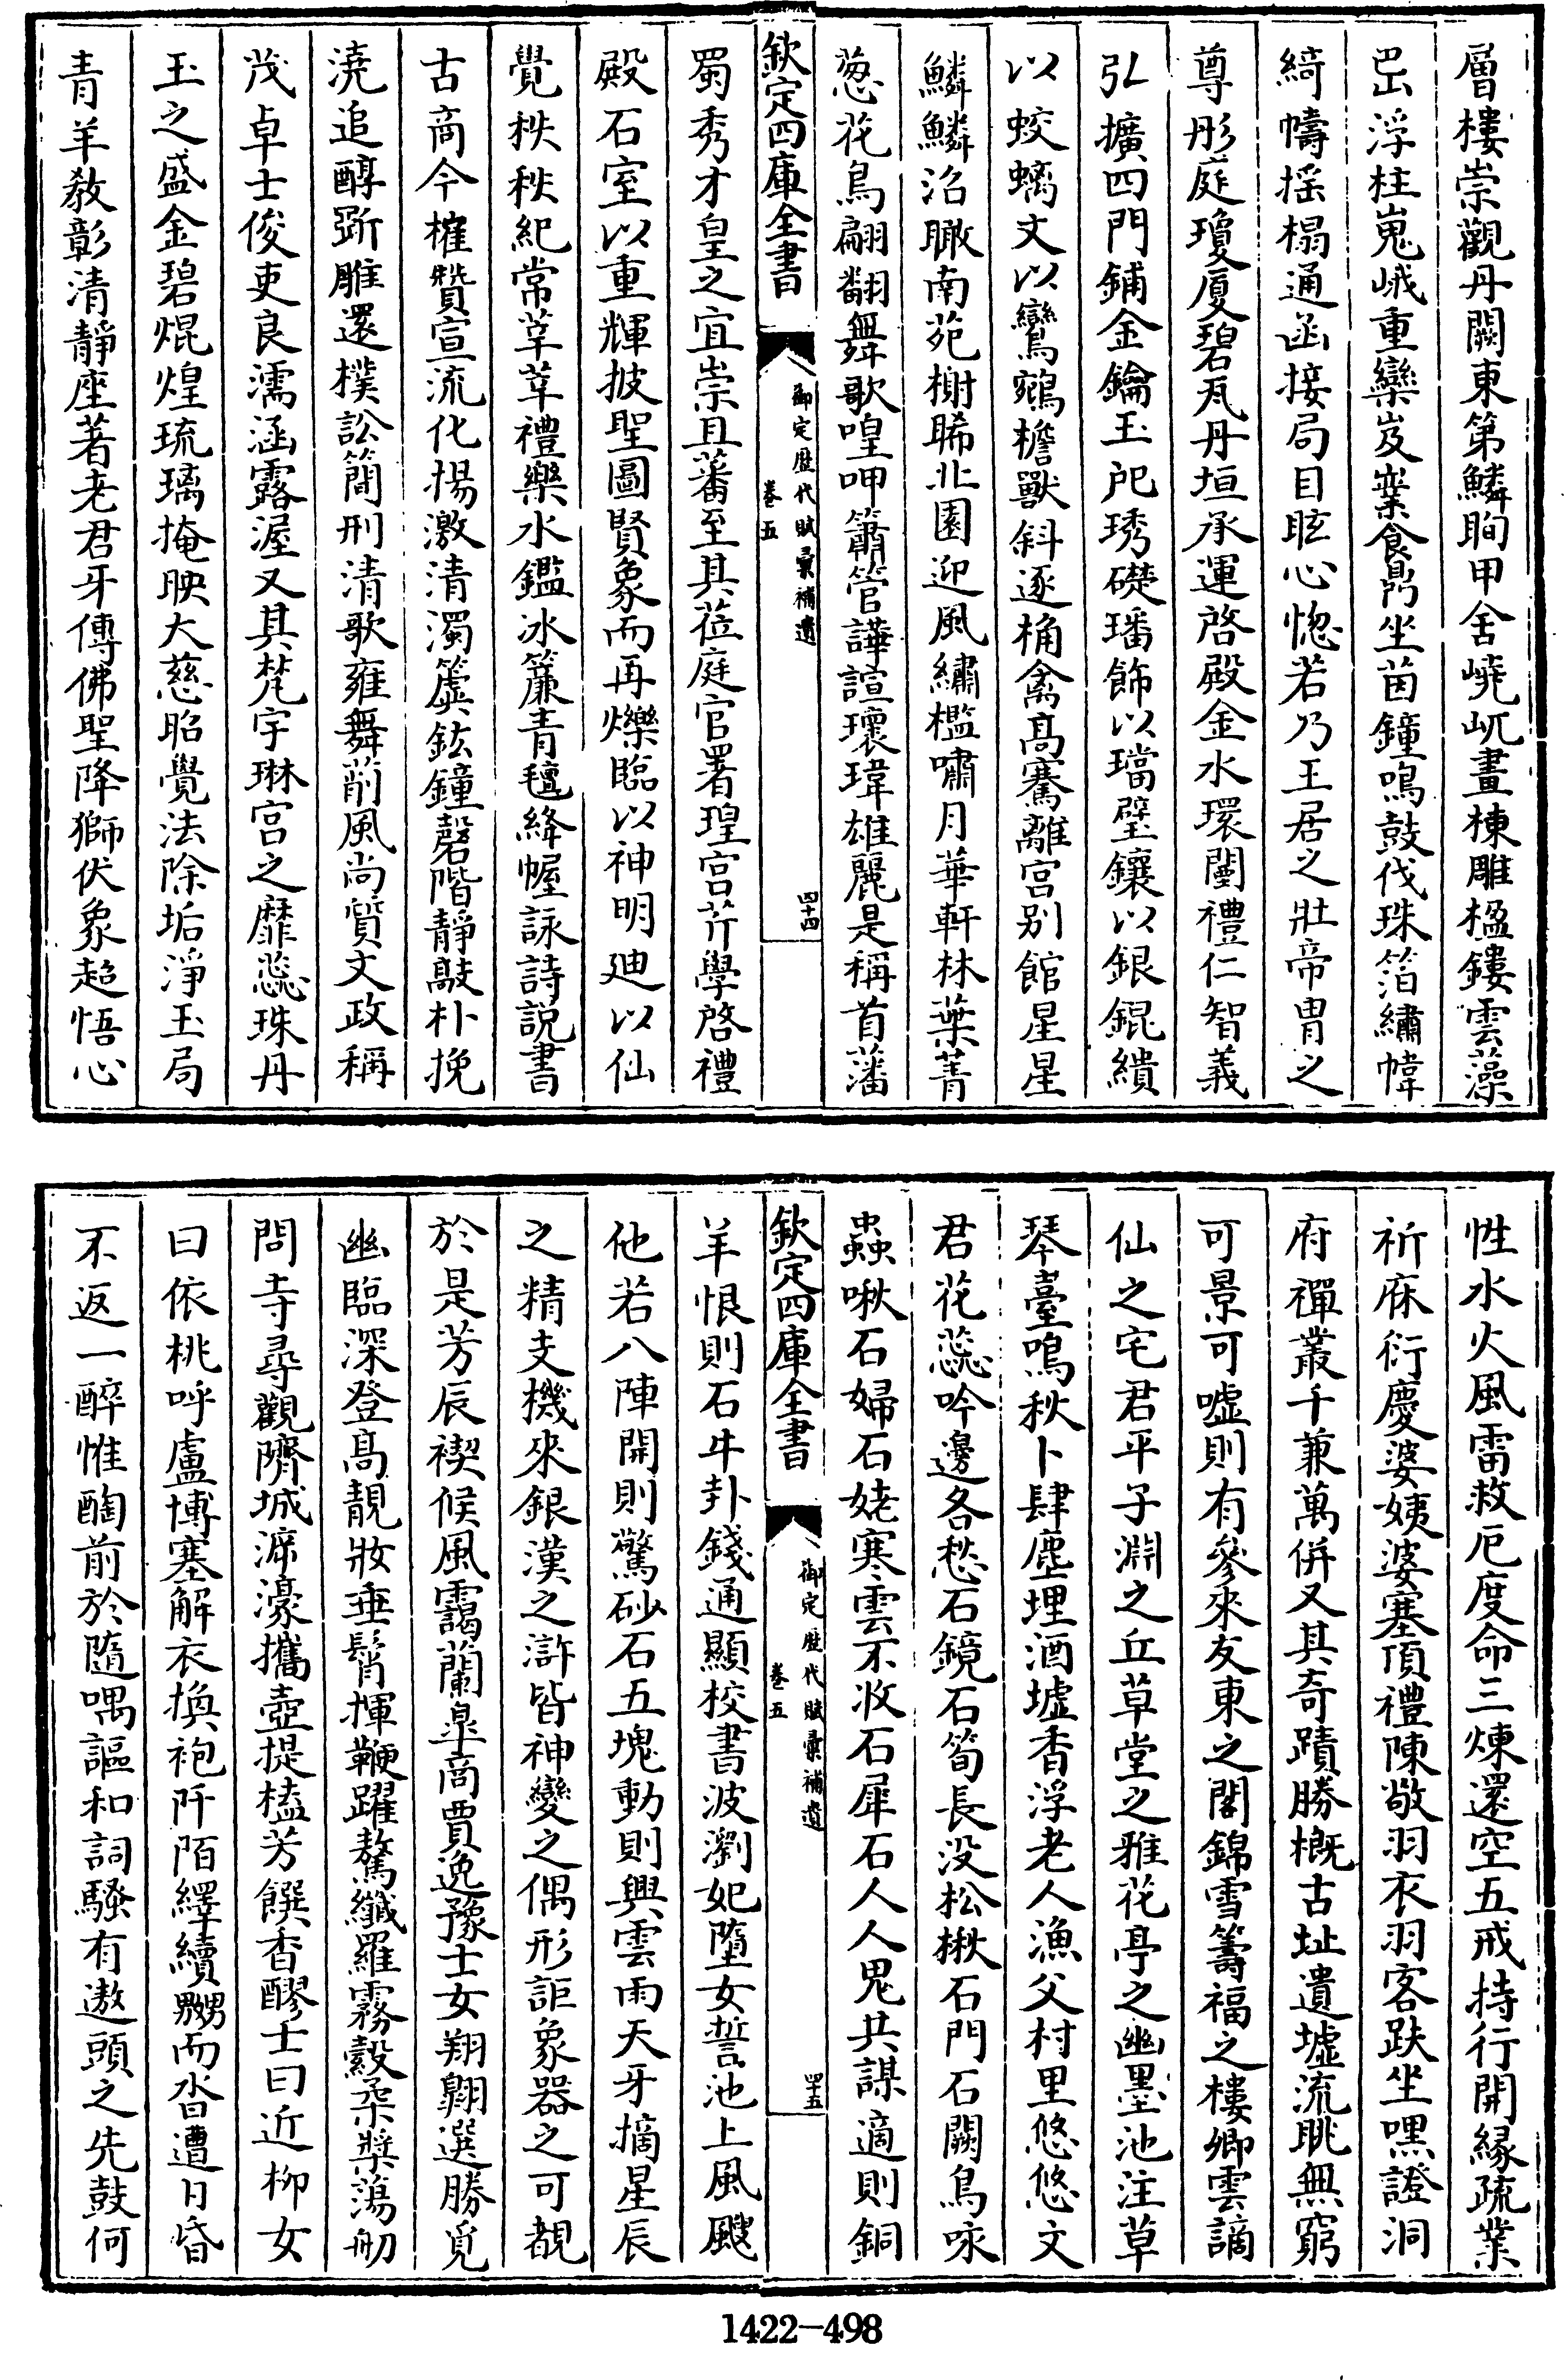 層樓崇觀丹闕東第鱗眴甲舍嶢屼畫棟雕楹鏤雲藻
出浮柱嵬峨重欒岌嶪食鼎坐茵鐘鳴鼓伐珠箔繡幃
綺幬搖榻通函接局目眩心惚若乃王居之壯帝胄之
尊彤庭瓊廈碧瓦丹垣承運啓殿金水環闉禮仁智義
弘擴四門鋪金鑰玉戺琇礎璠飾以璫璧鑲以銀錕繢
以蛟螭文以鸞鵷檐獸斜逐桷禽高騫離宮别館星星
鱗鱗沼瞰南苑榭睎北園迎風繡檻嘯月華軒林葉菁
葱花鳥翩翻舞歌喤呷簫管譁諠瓌瑋雄麗是稱首藩
欽定四庫全書
御定歷代賦彙補遺
卷五
四十四
蜀秀才皇之宜崇且蕃至其莅庭官署瑝宮芹學啓禮
殿石室以重輝披聖圖賢象而再爍臨以神明廸以仙
覺秩秩紀常莘莘禮樂水鑑冰簾青氊絳幄詠詩説書
古商今㩁贊宣流化揚激清濁簴鈜鐘磬階靜敲朴挽
澆追醇斲雕還樸訟簡刑清歌雍舞萷風尚質文政稱
茂卓士俊吏良濡涵露渥又其梵宇琳宫之靡蕊珠丹
玉之盛金碧焜煌琉璃掩映大慈昭覺法除垢淨玉局
青羊敎彰清靜座著老君牙傳佛聖降獅伏象超悟心
性水火風雷救厄度命三煉還空五戒持行開緣疏業
祈庥衍慶婆姨婆塞頂禮陳敬羽衣羽客趺坐嘿證洞
府禪叢千兼萬併又其奇蹟勝概古址遺墟流眺無窮
可景可噓則有參來友東之閣錦雪籌福之樓卿雲謫
仙之宅君平子淵之丘草堂之雅花亭之幽墨池注草
琴臺鳴秋卜肆塵埋酒墟香浮老人漁父村里悠悠文
君花蕊吟邊各愁石鏡石筍長没松楸石門石闕鳥咏
蟲啾石婦石姥寒雲不收石犀石人人鬼共謀適則銅
欽定四庫全書
御定歷代賦彙補遺
卷五
四十五
羊恨則石牛卦錢通顯校書波瀏妃墮女誓池上風颼
他若八陣開則驚砂石五塊動則興雲雨天牙摘星辰
之精支機來銀漢之滸皆神變之偶形詎象器之可覩
於是芳辰禊候風靄蘭皐商賈逸豫士女翔翺選勝覓
幽臨深登高靚妝垂髾揮鞭躍驁纖羅霧縠桑槳蕩舠
問寺尋觀隮城㴑濠攜壺提榼芳饌香醪士曰近柳女
曰依桃呼盧博塞解衣換袍阡陌繹續嬲而沓遭日昏
不返一醉惟酶前於隨喁謳和詞騷有遨頭之先鼓何
1422—498